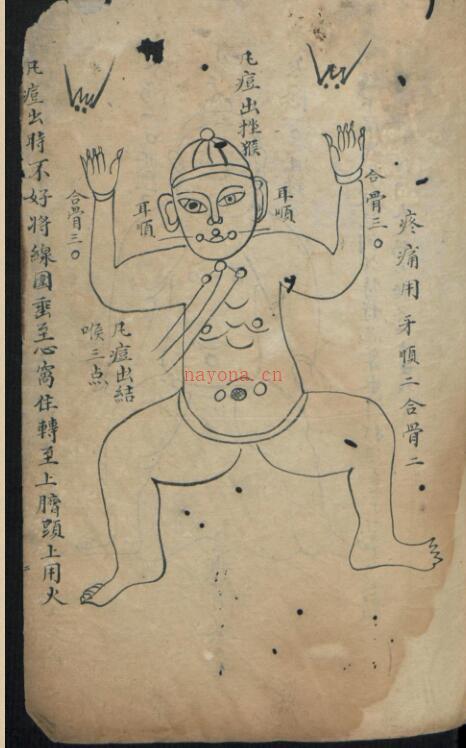 疼痛用牙順二合骨二
合骨三
耳順
凡痘出挫猴
耳順
合骨三
凡痘出結
喉三点
凡痘出時不好將線圍垂至心窩住轉至上臍顕上用火
nayona.cn